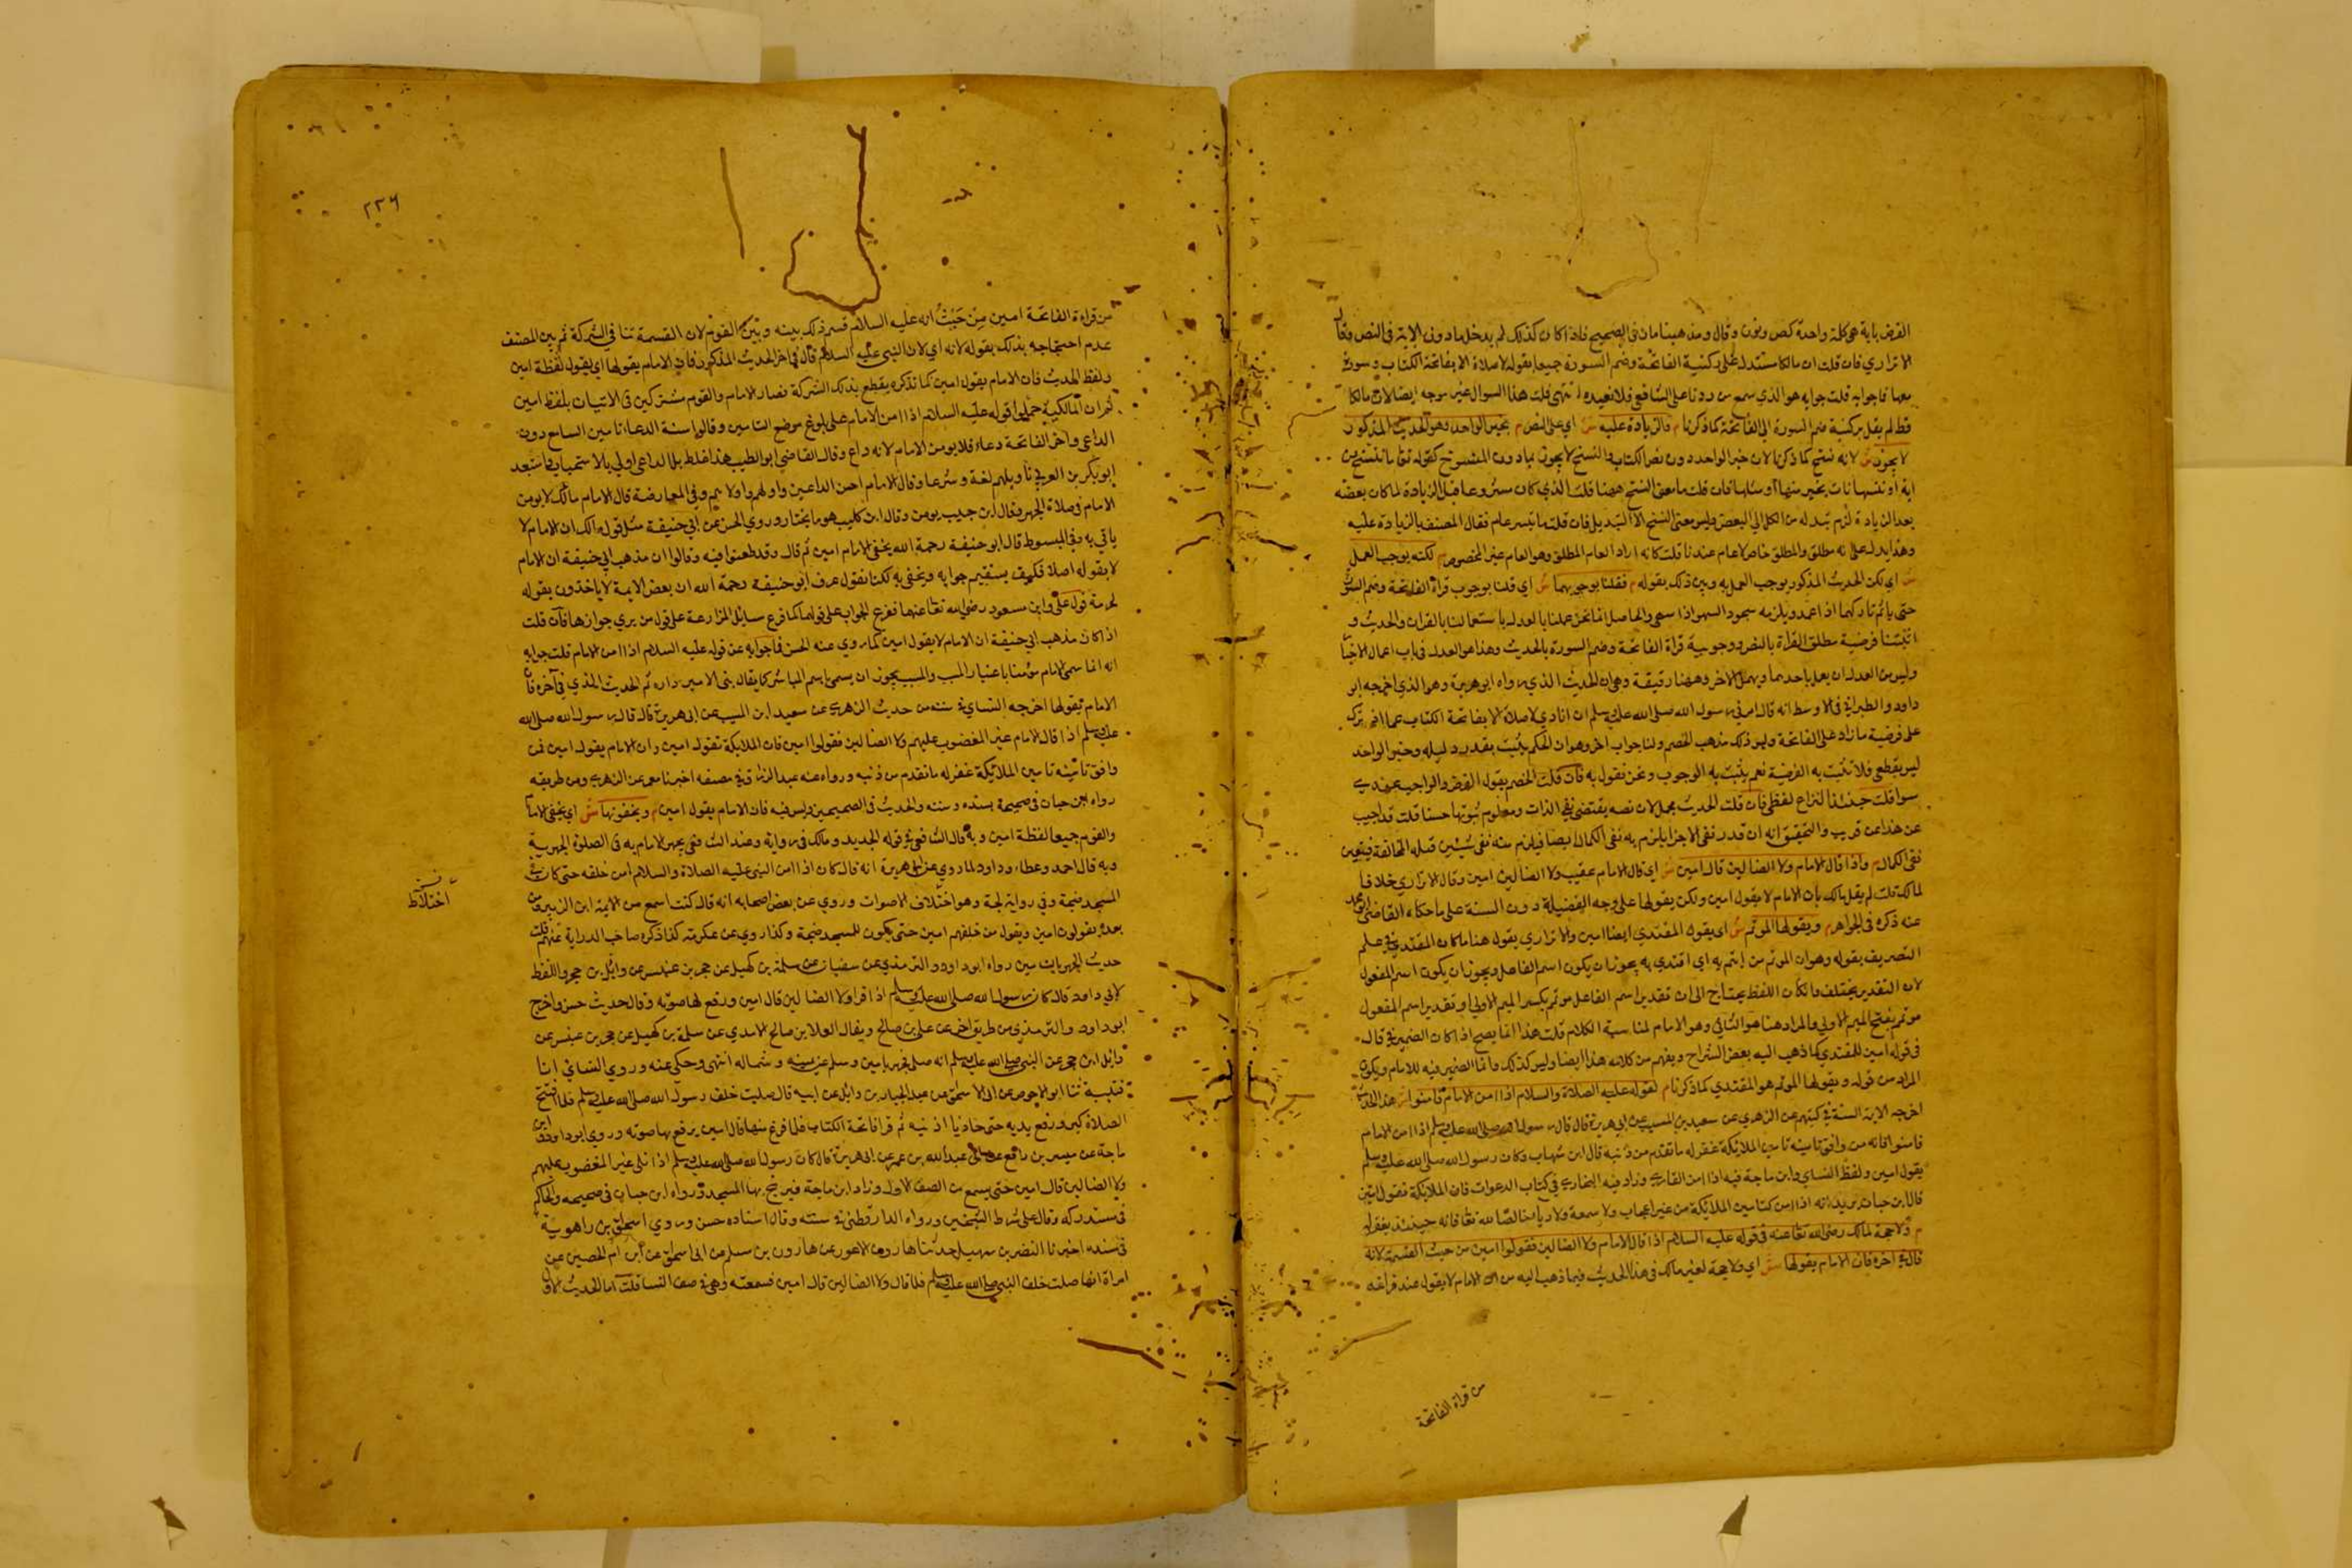 الفرض باية هى كلمة واحدة كص ونون وقال ومذهبنا مان فى الصحيح فاذا كان كذلك لم يدخل مادون الاية فى النص وقال
الاترازي فان قلت ان مالكا يستدل على ركنية الفاتحة وضم السورة جميعا بقوله لا صلاة الا بفاتحة الكتاب وسورة
معها فما جوابه قلت جوابه هو الذي سمع من ردنا على الشافعي فلا نعيده انتهى قلت هذا السوال غير موجه ايضا لان مالكا
قط لم يقل بركنية ضم السورة الى الفاتحة كما ذكرنا م والزيادة عليه ش اي على النص م بخبر الواحد وهو الحديث المذكور
لا يجوز ش لانه نسخ كما ذكرنا لان خبر الواحد دون نص الكتاب والنسخ لا يجوز بما دون المنسوخ كقوله تعا ما ننسخ من
اية او ننسها نات بخير منها او مثلها فان قلت ما معنى النسخ ههنا قلت الذي كان مشروعا قبل الزيادة لما كان بعضه
بعد الزيادة لزم تبدله من الكل الى البعض وليس معنى النسخ الا التبديل فان قلت ما تيسر عام فقال المصنف بالزيادة عليه
وهذا يدل على انه مطلق والمطلق خاص لا عام عندنا قلت كانه اراد العام المطلق وهو العام غير المخصوص م لكنه يوجب العمل
ش اي لكن الحديث المذكور يوجب العمل به وبين ذلك بقوله م فقلنا بوجوبهما ش اي قلنا بوجوب قراة الفاتحة وضم السورة
حتى ياثم تاركهما اذا عمد ويلزمه سجود السهو اذا سهى والحاصل اننا نحن عملنا بالعدل باستعمالنا بالقران والحديث و
اثبتنا فرضية مطلق القراة بالنص ووجوبية قراة الفاتحة وضم السورة بالحديث وهذا هو العدل فى باب اعمال الاخبار
وليس من العدل ان يعمل باحدهما ويهمل الاخر وههنا دقيقة وهى ان الحديث الذي رواه ابو هريرة وهو الذي اخرجه ابو
داود والطبراني فى الاوسط انه قال امرنى رسول الله صلى الله عليه وسلم ان انادي لا صلاة الا بفاتحة الكتاب فما
على فرضية ما زاد على الفاتحة وليس ذلك مذهب الخصم ولنا جواب اخر وهو ان الحكم يثبت بقدر دليله وخبر الواحد
ليس بقطعي فلا تثبت به الفرضية نعم يثبت به الوجوب ونحن نقول به فان قلت الخصم يقول الفرض والواجب عندي
سوا قلت حينئذ النزاع لفظى فان قلت الحديث مجمل لان نصه يقتضى نفى الذات ومعلوم ثبوتها حسا قلت قد اجيب
عن هذا عن قريب والتحقيق انه ان قدر نفى الاجزا يلزم به نفى الكمال ايضا فيلزم منه نفى شيئين قبله المخالفة فيتعين
نفى الكمال م واذا قال الامام ولا الضالين قال امين ش اي قال الامام عقيب ولا الضالين امين وقال الاترازي خلافا
لمالك قلت لم يقل مالك بان الامام لا يقول امين ولكن يقولها على وجه الفضيلة دون السنة على ما حكاه القاضى
عنه ذكره فى الجواهر م ويقولها الموتم ش اى يقول المقتدي ايضا امين والاترازي يقول هنا ما كان المقتدي فى علم
التصريف بقوله وهو ان الموتم من ايتم به اي اقتدي به يجوز ان يكون اسم الفاعل ويجوز ان يكون اسم المفعول
لان التقدير يختلف وان كان اللفظ يحتاج الى ان تقدير اسم الفاعل موتمم بكسر الميم الاولى وتقدير اسم المفعول
موتمم بفتح الميم الاولى والمراد هنا هو الثاني وهو الامام لمناسبة الكلام قلت هذا انما يصح اذا كان الضمير فى قال
فى قوله امين للمقتدي كما ذهب اليه بعض الشراح ويفهم من كلامه هذا ايضا وليس كذلك وانما الضمير فيه للامام ويكون
المراد من قوله ويقولها الموتم هو المقتدي كما ذكرنا م لقوله عليه الصلاة والسلام اذا امن الامام فامنوا ش هذا الحديث
اخرجه الايمة الستة فى كتبهم عن الزهري عن سعيد بن المسيب عن ابى هريرة قال قال رسول الله صلى الله عليه وسلم اذا امن الامام
فامنوا فانه من وافق تامينه تامين الملائكة غفر له ما تقدم من ذنبه قال ابن شهاب وكان رسول الله صلى الله عليه وسلم
يقول امين ولفظ النساى وابن ماجة فيه اذا امن القاري وزاد فيه البخاري فى كتاب الدعوات فان الملائكة تقول امين
قال ابن حبان يريد انه اذا امن كتامين الملائكة من غير اعجاب ولا سمعة ولا ريا خالصا لله تعا فانه حينئذ يغفر له
م ولا حجة لمالك رضى الله تعا عنه فى قوله عليه السلام اذا قال الامام ولا الضالين فقولوا امين من حيث القسمة لانه
قال فى اخره فان الامام يقولها ش اي ولا حجة لغير مالك فى هذا الحديث فيما ذهب اليه من ان الامام لا يقوله عند فراغه
من قراة الفاتحة
٢٢٦
من قراءة الفاتحة امين من حيث انه عليه السلام قسم ذلك بينه وبين القوم لان القسمة تنا فى الشركة ثم بين المصنف
عدم احتجاجه بذلك بقوله لانه اي لان النبى عليه السلام قال فى اخر الحديث المذكور فان الامام يقولها اي يقول لفظة امين
ولفظ الحديث فان الامام يقول امين كما نذكره يقطع بذلك الشركة فصار الامام والقوم مشتركين فى الاتيان بلفظ امين
ثم ان المالكية حملوا قوله عليه السلام اذا امن الامام على بلوغ موضع التامين وقالوا سنة الدعاء تامين السامع دون
الداعى واخر الفاتحة دعاء فلا يومن الامام لانه داع وقال القاضى ابو الطيب هذا غلط بل الداعى اولى بالاستجابة واستبعد
ابو بكر بن العربى تاويلهم لغة وشرعا وقال الامام احسن الداعين واولهم واولاهم وفى المعارضة قال الامام مالك لا يومن
الامام فى صلاة الجهر وقال ابن حبيب يومن وقال ابن كليب هو ما يختار وروي الحسن عن ابى حنيفة مثل قول مالك ان الامام لا
ياتى به وفى المبسوط قال ابو حنيفة رحمة الله يخفى الامام امين ثم قال وقد طعنوا فيه وقالوا ان مذهب ابى حنيفة ان الامام
لا يقوله اصلا فكيف يستقيم جوابه ويخفى به لكنا نقول عرف ابو حنيفة رحمة الله ان بعض الايمة لا ياخذون بقوله
لحرمة قول على وابن مسعود رضى الله تعا عنهما ففرع الجواب على قولهما كما فرع مسائل المزارعة على قول من يري جوازها فان قلت
اذا كان مذهب ابى حنيفة ان الامام لا يقول امين كما روي عنه الحسن فما جوابه عن قوله عليه السلام اذا امن الامام قلت جوابه
انه انما سمى الامام مؤمنا باعتبار السبب والمسبب يجوز ان يسمى باسم المباشر كما يقال بنى الامير داره ثم الحديث الذي فى آخره فان
الامام يقولها اخرجه النساى فى سننه من حديث الزهري عن سعيد ابن المسيب عن ابى هريرة قال قال رسول الله صلى الله
عليه وسلم اذا قال الامام غير المغضوب عليهم ولا الضالين فقولوا امين فان الملايكة تقول امين وان الامام يقول امين فمن
وافق تامينه تامين الملائكة غفر له ما تقدم من ذنبه ورواه عنه عبد الرزاق فى مصنفه اخبرنا معمر عن الزهري ومن طريقه
رواه ابن حبان فى صحيحه بسنده ومتنه والحديث فى الصحيحين وليس فيه فان الامام يقول امين م ويخفونها ش اي يخفى الامام
والقوم جميعا لفظة امين وبه قال الشافعى فى قوله الجديد ومالك فى رواية وعند الشافعى يجهر الامام به فى الصلوة الجهرية
وبه قال احمد وعطاء وداود لما روي عن ابى هريرة انه قال كان اذا امن النبى عليه الصلاة والسلام امن خلفه حتى كان فى
المسجد ضجة وفى رواية لجة وهو اختلاف الاصوات وروي عن بعض اصحابه انه قال كنت اسمع من الايمة ابن الزبير ومن
بعده يقولون امين ويقول من خلفهم امين حتى يكون للمسجد ضجة وكذا روي عن عكرمة كذا ذكره صاحب الدراية عنهم قلت
حديث الجهر بامين رواه ابو داود والترمذي عن سفيان عن سلمة بن كهيل عن حجر بن عنبس عن وائل بن حجر واللفظ
لابى داود قال كان رسول الله صلى الله عليه وسلم اذا قرا ولا الضالين قال امين ورفع لها صوته وقال حديث حسن واخرج
ابو داود والترمذي من طريق اخر عن على بن صالح ويقال العلا بن صالح الاسدي عن سلمة بن كهيل عن حجر بن عنبس عن
وائل ابن حجر عن النبى صلى الله عليه وسلم انه صلى فجهر بامين وسلم عن يمينه وشماله انتهى وحكى عنه وروي النسائي انبا
قتيبة ثنا ابو الاحوص عن ابى الاسحق عن عبد الجبار بن وائل عن ابيه قال صليت خلف رسول الله صلى الله عليه وسلم فلما افتتح
الصلاة كبر ورفع يديه حتى حاذيا اذنيه ثم قرا فاتحة الكتاب فلما فرغ منها قال امين يرفع بها صوته وروي ابو داود وابن
ماجة عن بشر بن رافع عن عبد الله بن عمر عن ابى هريرة قال كان رسول الله صلى الله عليه وسلم اذا تلى غير المغضوب عليهم
ولا الضالين قال امين حتى يسمع من الصف الاول وزاد ابن ماجة فيرتج بها المسجد ورواه ابن حبان فى صحيحه والحاكم
فى مستدركه وقال على شرط الشيخين ورواه الدارقطنى فى سننه وقال اسناده حسن وروي اسحق بن راهوية
فى مسنده اخبرنا النضر بن سهيل حدثنا هارون الاعور عن هارون بن مسلم عن ابى اسحق عن ابن ام الحصين عن
امراة انها صلت خلف النبى صلى الله عليه وسلم فلما قال ولا الضالين قال امين فسمعته وهى فى صف النسا قلت اما الحديث الاول
اختلاط